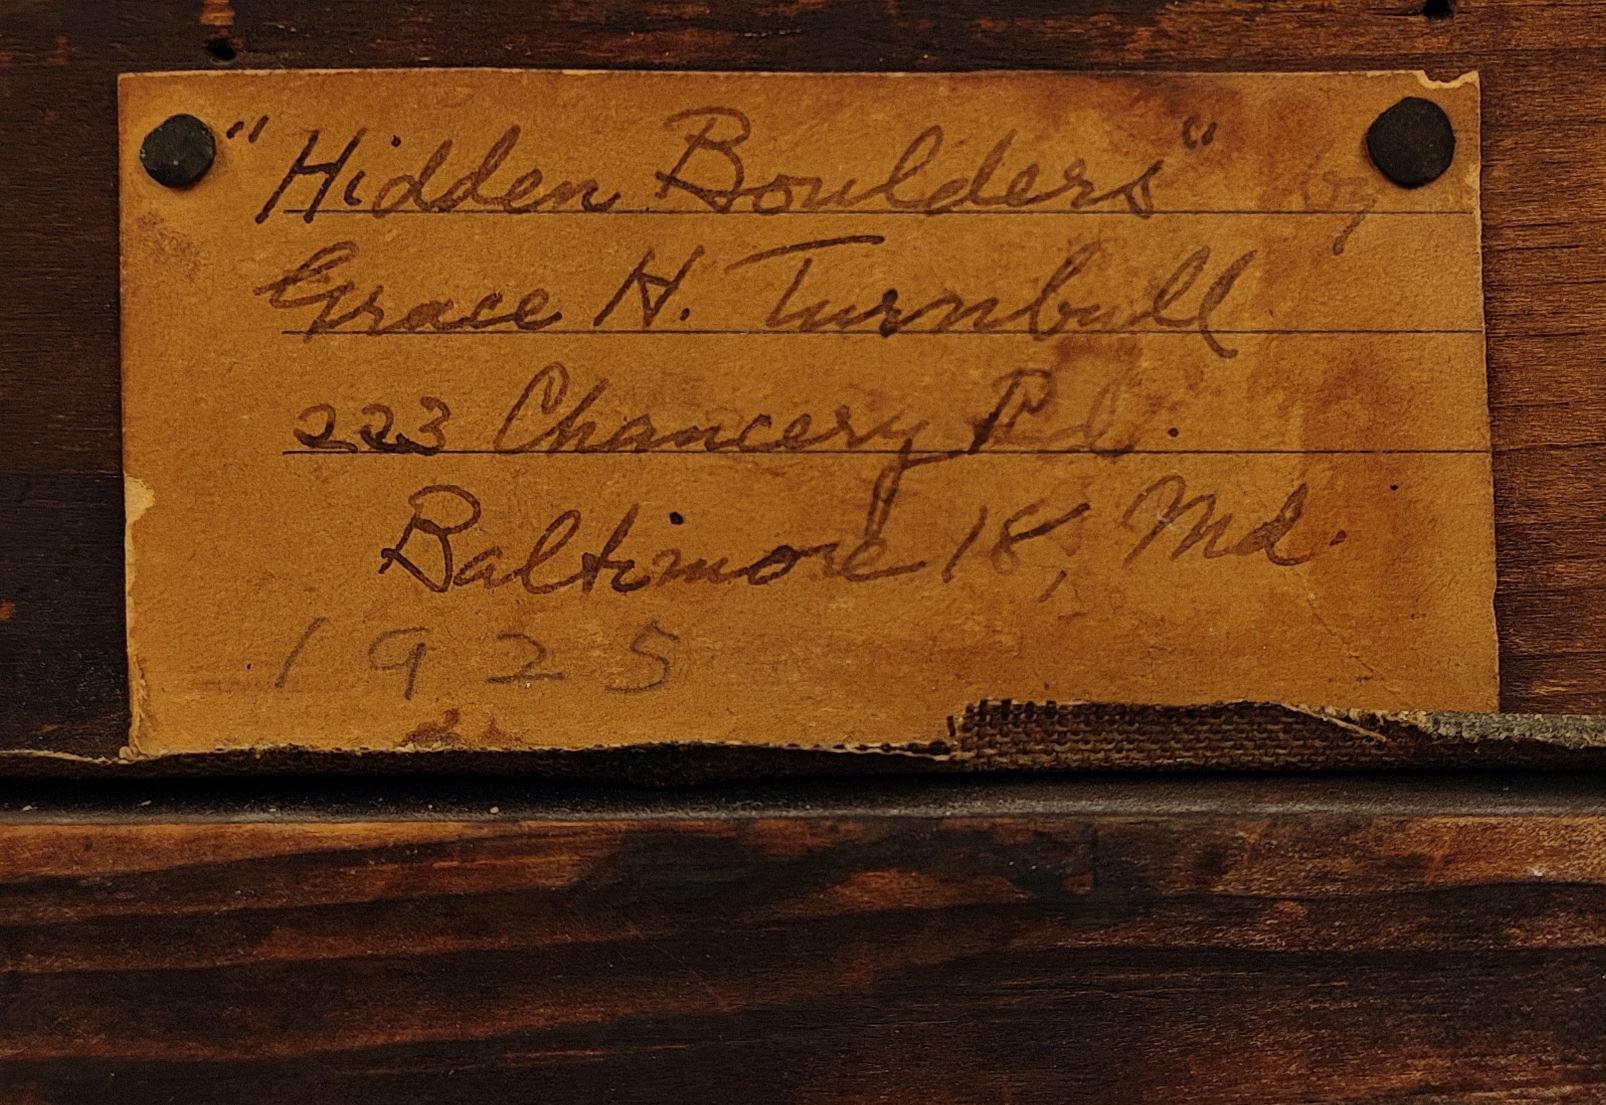 "Hidden Boulders" by
Grace H. Turnbull
223 Chancery Rd.
Baltimore 18, Md.
1925